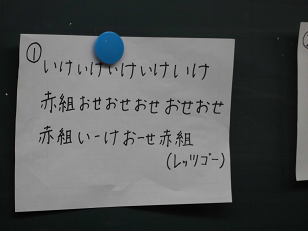 ①
いけいけいけいけいけ
赤組おせおせおせおせおせ
赤組いーけおーせ赤組
(レッツゴー)